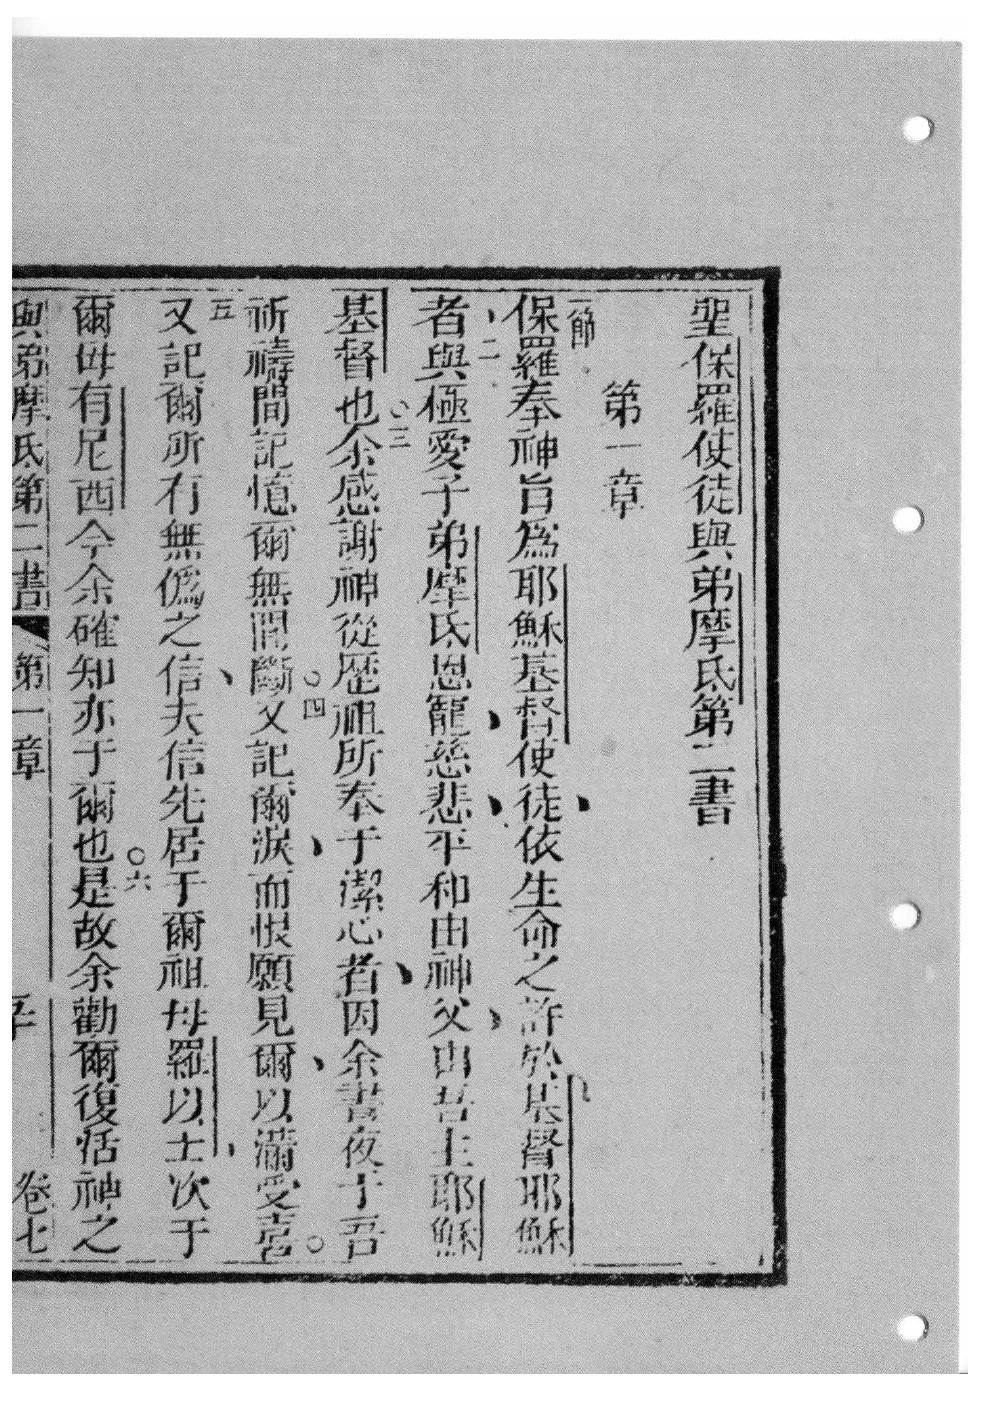 聖保羅使徒與弟摩氏第二書
第一章
一節保羅奉神旨爲耶穌基督使徒、依生命之許於基督耶穌、
二者與極愛子弟摩氏恩寵、慈悲、平和由神父、由吾主耶穌
基督也。三余感謝神從歷祖所奉于潔心者、因余晝夜于吾
祈禱間記憶爾無間斷。四又記爾淚、而恨願見爾、以滿受喜。
五又記爾所有無僞之信、夫信先居于爾祖母羅以士、次于
爾母有尼西今余確知亦于爾也。六是故余勸爾復活神之
與弟摩氏第二書 第一章 卷七